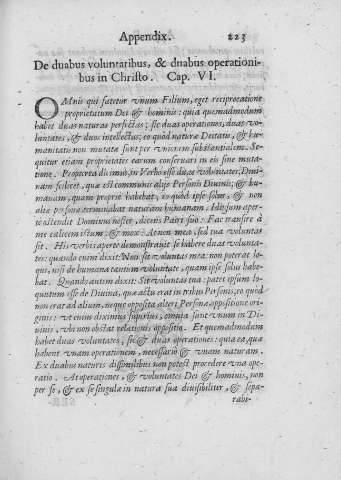 Appendix. 223
De duabus voluntatibus, & duabus operationi-
bus in Christo. Cap. VI.
OMnis qui fatetur vnum Filium, eget reciprocatione
proprietatum Dei & hominis: quia quemadmodum
habet duas naturas perfectas; sic duas operationes, duas vo-
luntates, & duos intellectus: eo quòd naturæ Deitatis, & hu-
manitatis non mutatæ sunt per vnionem substantialem. Se-
quitur etiam proprietates earum conseruari in eis sine muta-
tione. Propterea dicimus, in Verbo esse duas voluntates; Diui-
nam scilicet, quæ est communis alijs Personis Diuinis; & hu-
manam, quam propriè habebat, eo quòd ipse solus, & non
alia persona terminabat naturam humanam. Id ipsum aper-
tè ostendit Dominus noster, dicens Patri suo: Fac transire à
me calicem istum: & mox: At non mea, sed tua voluntas
sit. His verbis apertè demonstrauit se habere duas volunta-
tes: quando enim dixit: Non sit voluntas mea: non poterat lo-
qui, nisi de humana tantùm voluntate, quam ipse solus habe-
bat. Quando autem dixit: Sit voluntas tua: patet ipsum lo-
quutum esse de Diuina, quæ acta erat in tribus Personis, eo quòd
non erat ad alium, neque opposita alteri Personæ oppositione ori-
ginis: vt enim diximus superiùs, omnia sunt vnum in Di-
uinis, vbi non obstat relationis oppositio. Et quemadmodum
habet duas voluntates, sic & duas operationes: quia ea, quæ
habent vnam operationem, necessariò & vnam naturam.
Ex duabus naturis dissimilibus non potest procedere vna ope-
ratio. At operationes, & voluntates Dei & hominis, non
per se, & ex se singulæ in natura sua diuisibiliter, & sepa-
rabi-